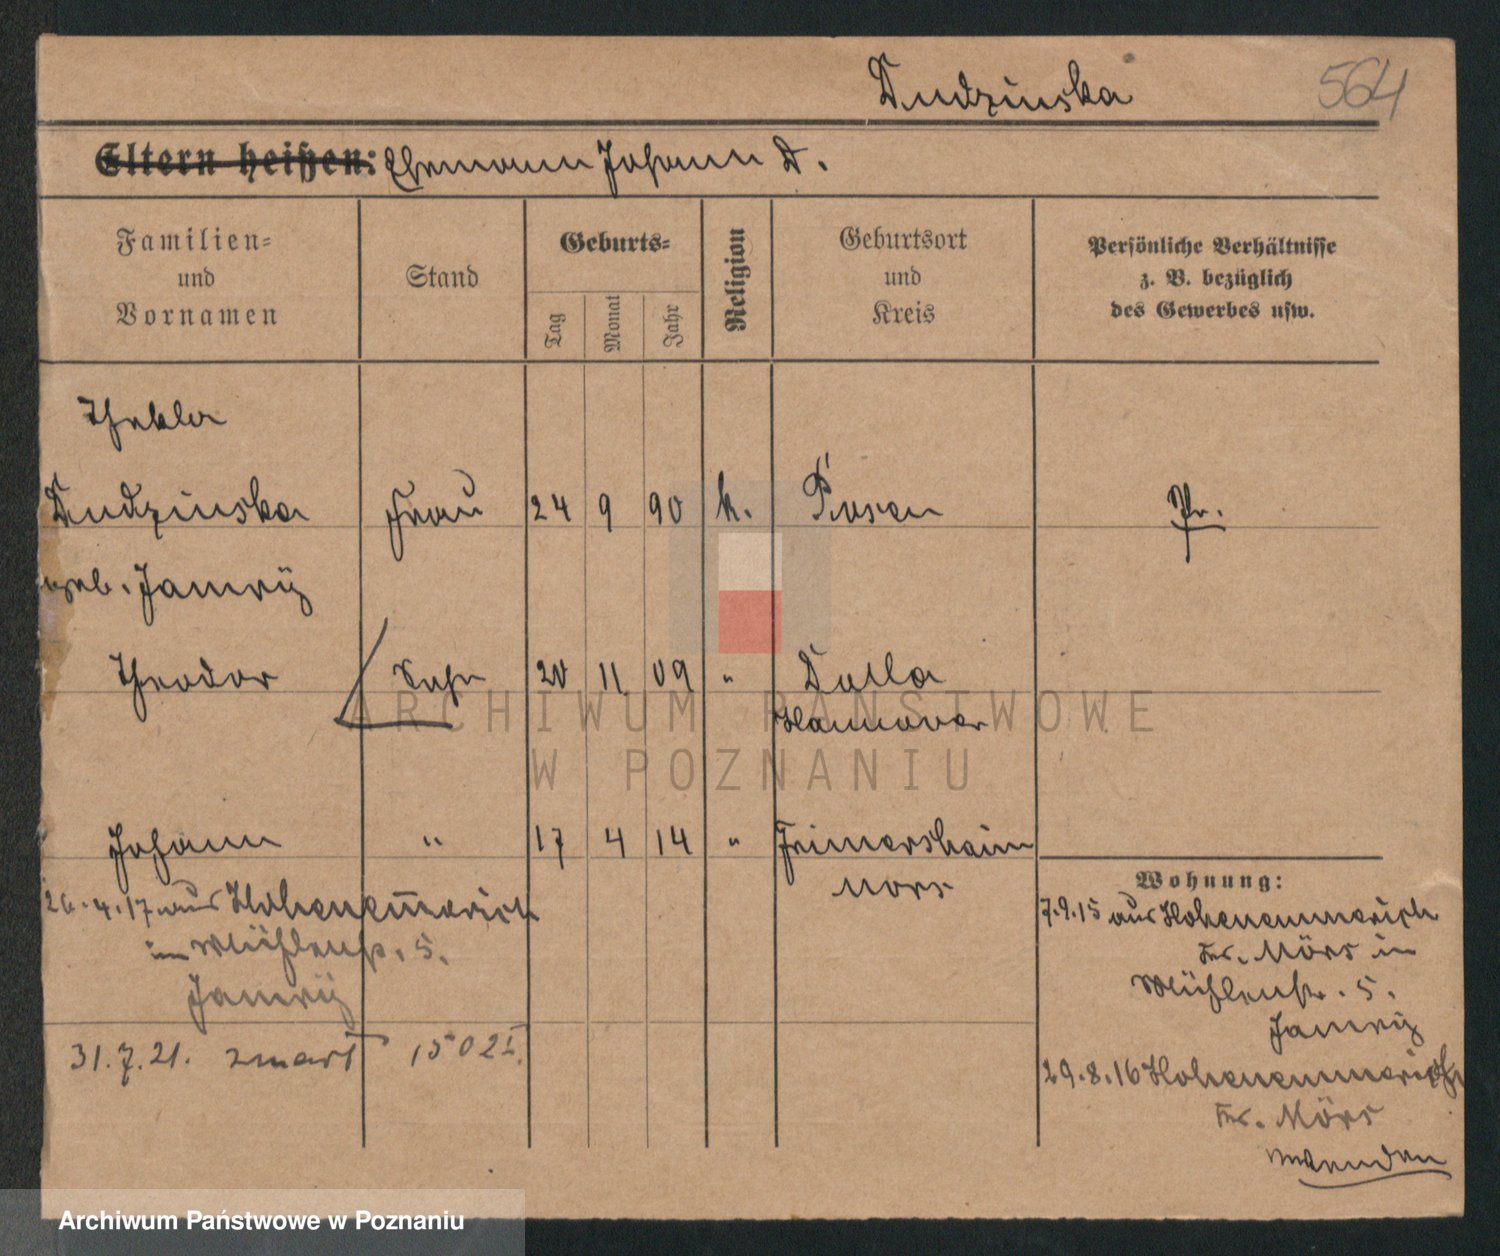 Dudzinska
564
Eltern heißen: Ehemann Johann D.
Familien=
und
Vornamen
Stand
Geburts=
Tag
Monat
Jahr
Religion
Geburtsort
und
Kreis
Persönliche Verhältnisse
z. B. bezüglich
des Gewerbes usw.
Thekla
Dudzinska Frau 24 9 90 k. Posen Pr.
geb. Jamrÿ
Theodor Sohn 20 11 09 " Hannover
Johann " 17 4 14 " Frimersheim
Mörs
26.4.17 aus Hohenem̅erich
in Mühlenstr. 5.
Jamrÿ
31.7.21. zmarł 1502I.
Wohnung:
7.9.15 aus Hohenemmerich
Kr. Mörs in
Mühlenstr. 5.
Jamrÿ
29.8.16 Hohenemmerich
Kr. Mörs
ARCHIWUM PAŃSTWOWE
W POZNANIU
Archiwum Państwowe w Poznaniu